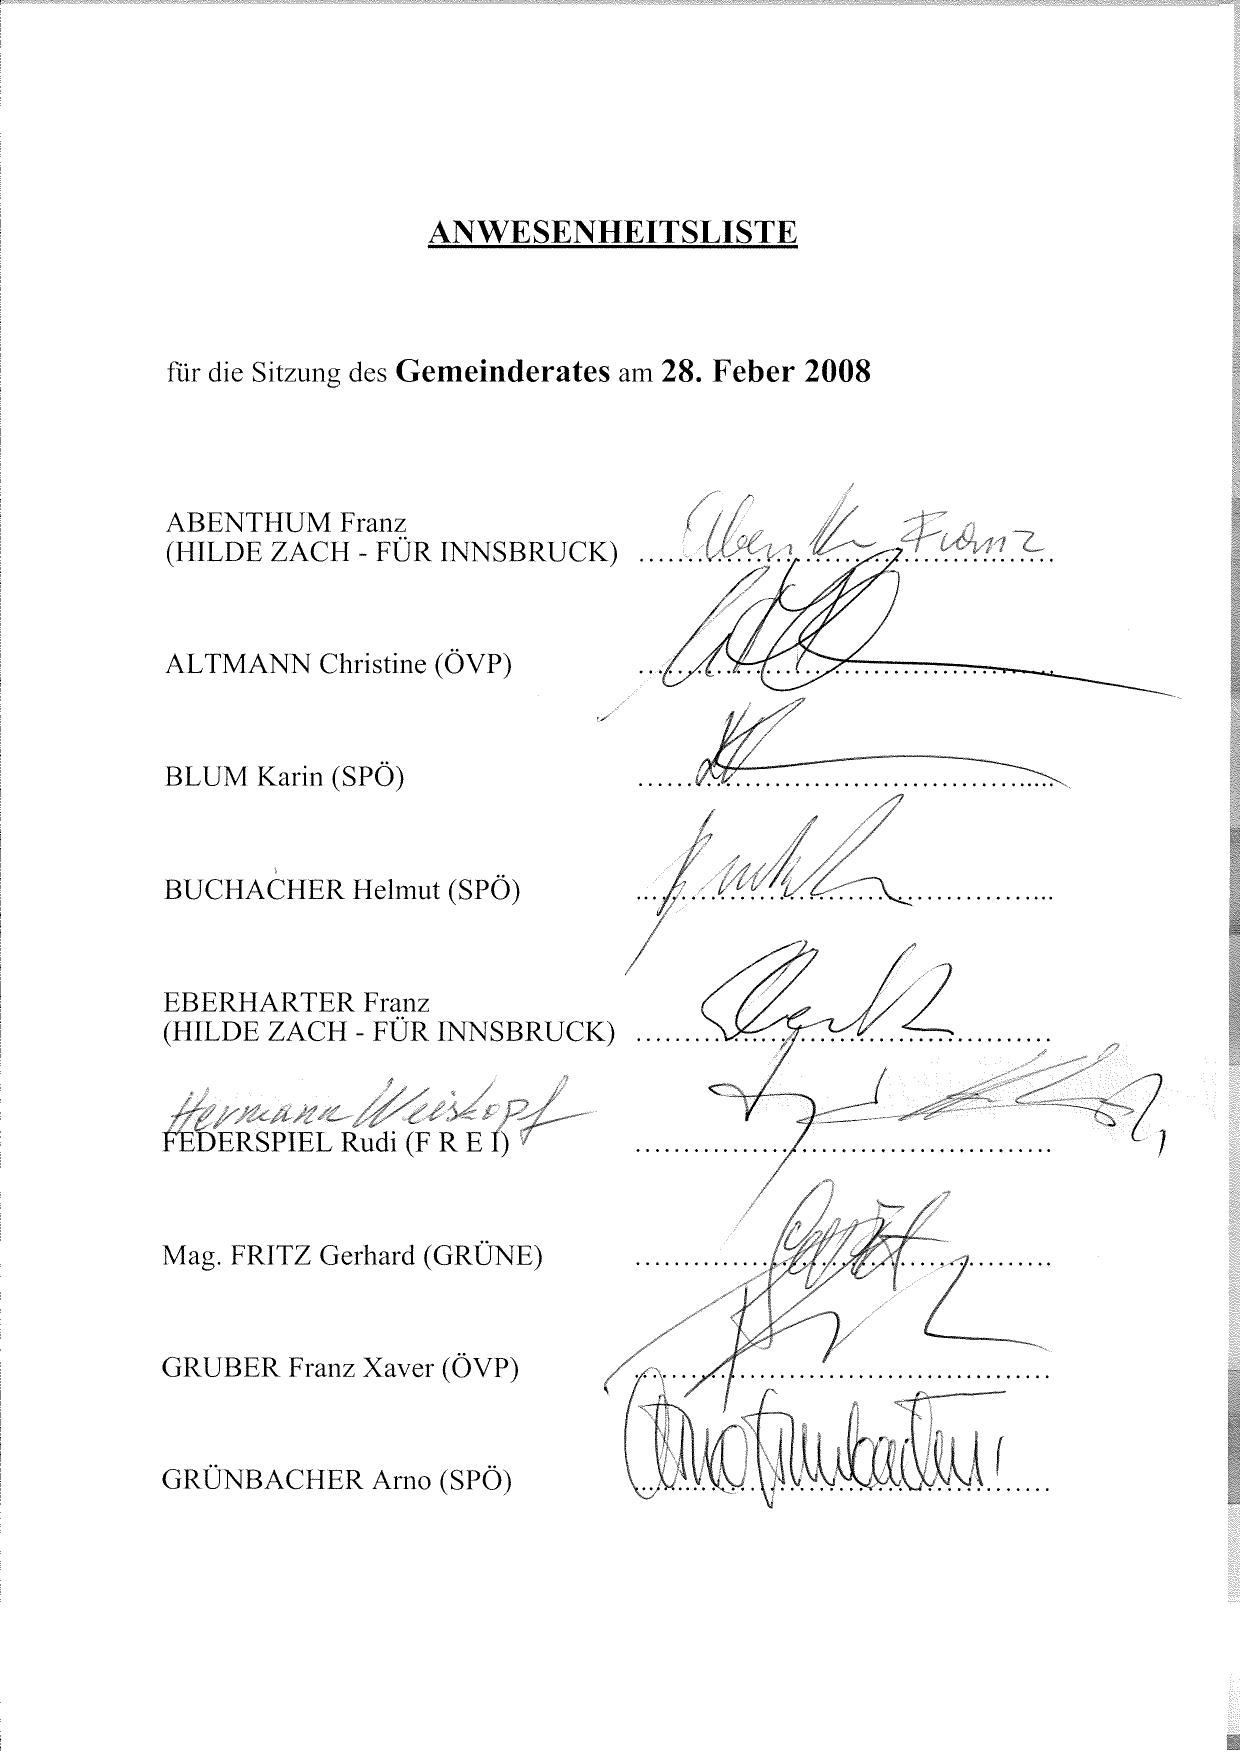 ANWESENHEITSLISTE
für die Sitzung des Gemeinderates am 28. Feber 2008
ABENTHUM Franz
(HILDE ZACH - FÜR INNSBRUCK) ........................................ Franz
ALTMANN Christine (ÖVP) ........................................
BLUM Karin (SPÖ) ........................................
BUCHACHER Helmut (SPÖ) ........................................
EBERHARTER Franz
(HILDE ZACH - FÜR INNSBRUCK) ........................................
Hermann Weiskopf
FEDERSPIEL Rudi (F R E I) ........................................
Mag. FRITZ Gerhard (GRÜNE) ........................................
GRUBER Franz Xaver (ÖVP) ........................................
GRÜNBACHER Arno (SPÖ) ........................................ Arno Grünbacher